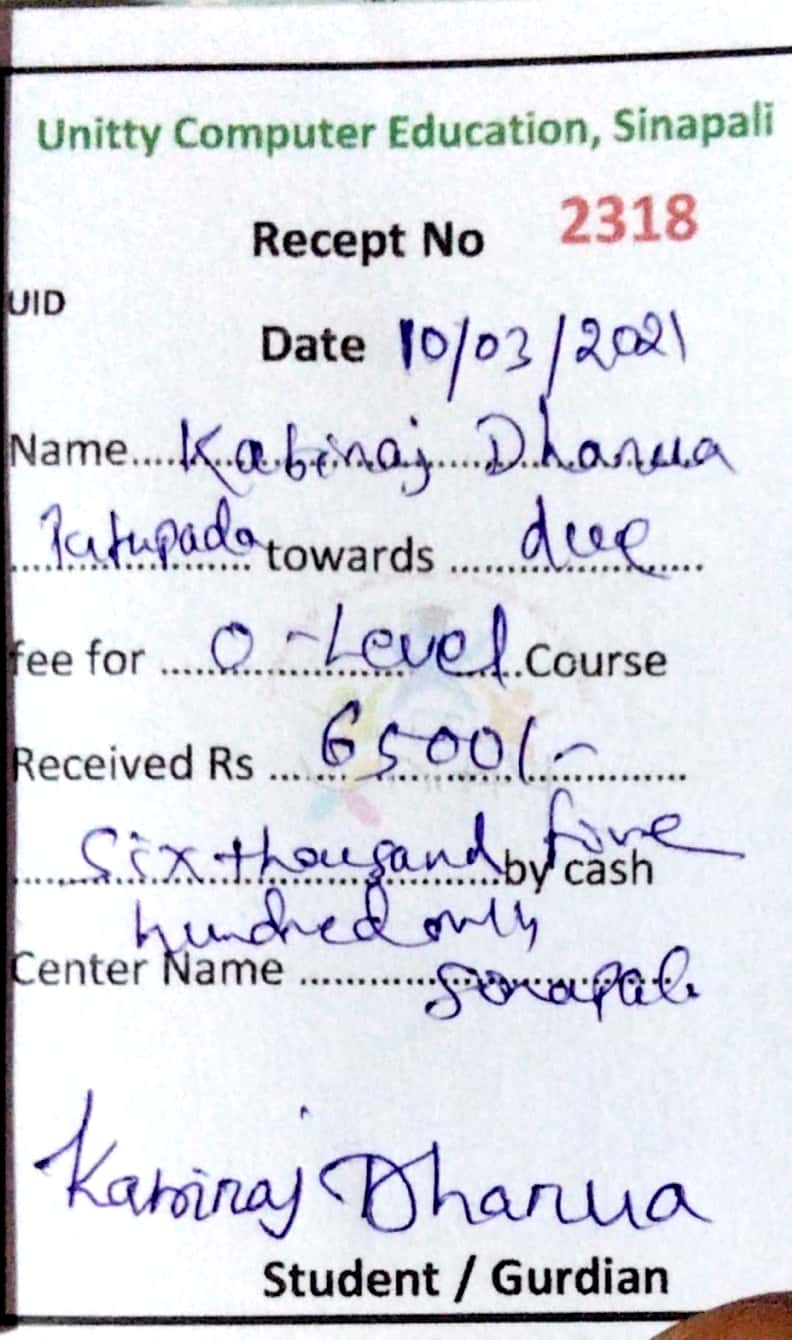 Unitty Computer Education, Sinapali
Recept No 2318
UID
Date 10/03/2021
Name.....Kabiraj Dharua
Patupada towards ..... due
fee for ..... O-Level.Course
Received Rs ... 6500/-
Six thousand five by cash
hundred only
Center Name ..... Sinapali
Kabiraj Dharua
Student / Gurdian